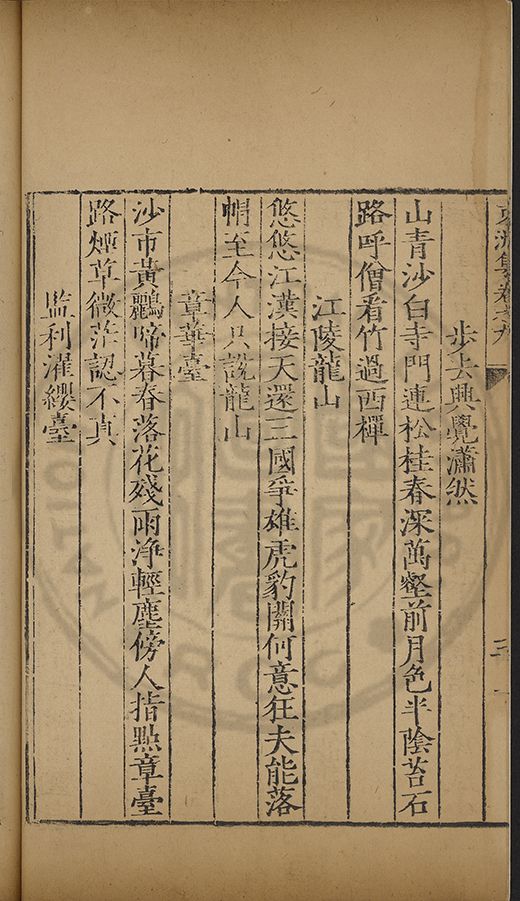 步去興覺瀟然
山青沙白寺門連松桂春深萬壑前月色半陰苔石
路呼僧看竹過西禪
江陵龍山
悠悠江漢接天還三國爭雄虎豹關何意狂夫能落
帽至今人只說龍山
章華臺
沙市黃鸝啼暮春落花殘雨淨輕塵傍人指點章臺
路煙草微茫認不真
監利濯纓臺